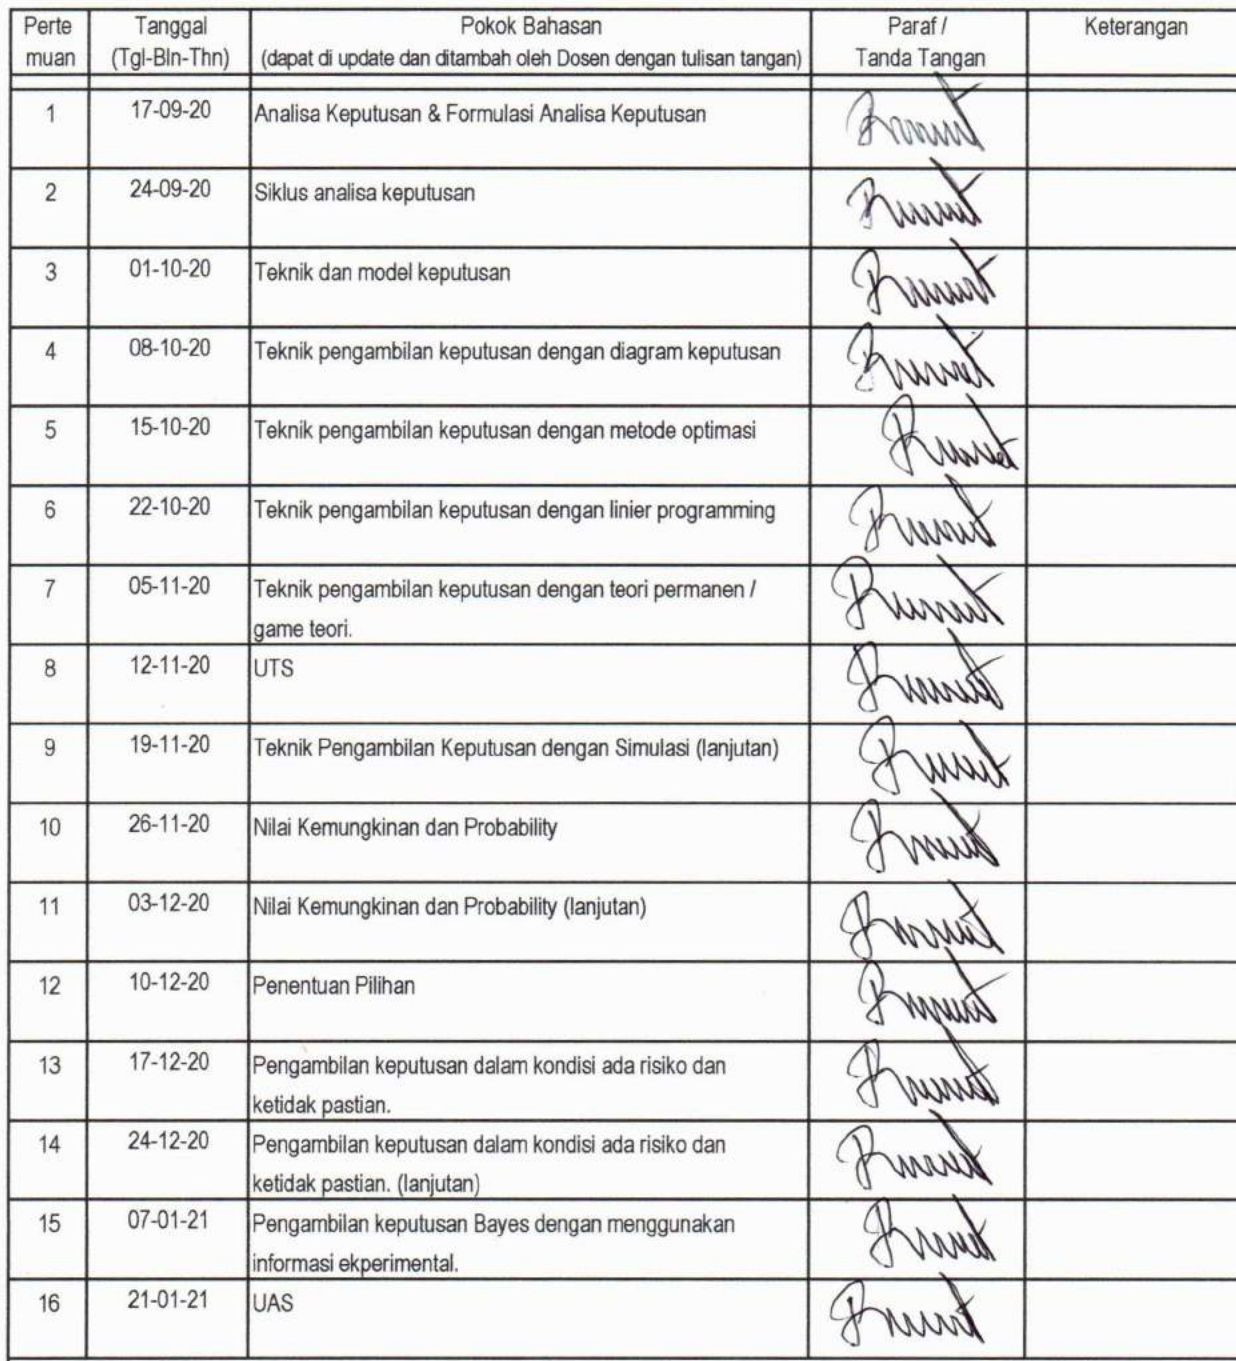 Perte
muan
Tanggal
(Tgl-Bln-Thn)
Pokok Bahasan
(dapat di update dan ditambah oleh Dosen dengan tulisan tangan)
Paraf /
Tanda Tangan
Keterangan
1 17-09-20 Analisa Keputusan & Formulasi Analisa Keputusan
2 24-09-20 Siklus analisa keputusan
3 01-10-20 Teknik dan model keputusan
4 08-10-20 Teknik pengambilan keputusan dengan diagram keputusan
5 15-10-20 Teknik pengambilan keputusan dengan metode optimasi
6 22-10-20 Teknik pengambilan keputusan dengan linier programming
7 05-11-20 Teknik pengambilan keputusan dengan teori permanen /
game teori.
8 12-11-20 UTS
9 19-11-20 Teknik Pengambilan Keputusan dengan Simulasi (lanjutan)
10 26-11-20 Nilai Kemungkinan dan Probability
11 03-12-20 Nilai Kemungkinan dan Probability (lanjutan)
12 10-12-20 Penentuan Pilihan
13 17-12-20 Pengambilan keputusan dalam kondisi ada risiko dan
ketidak pastian.
14 24-12-20 Pengambilan keputusan dalam kondisi ada risiko dan
ketidak pastian. (lanjutan)
15 07-01-21 Pengambilan keputusan Bayes dengan menggunakan
informasi ekperimental.
16 21-01-21 UAS